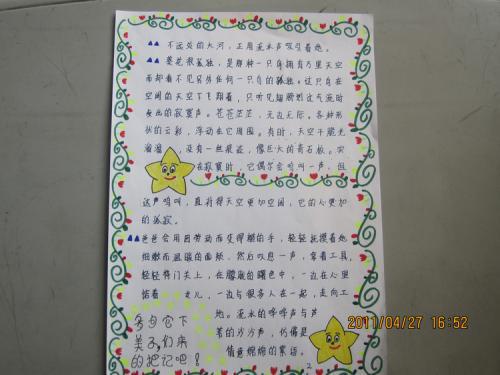 不远处的大河，正用流水声吸引着她。
葵花很孤独，是那种一只鸟拥有万里天空
而却看不见另外任何一只鸟的孤独。这只鸟在
空阔的天空下飞翔着，只听见翅膀划过气流时
发出的寂寞声。苍苍茫茫，无边无际。各种形
状的云彩，浮动在它周围。有时，天空干脆光
溜溜，没有一丝痕迹，像巨大的青石板。实
在寂寞时，它偶尔会鸣叫一声，但
这声鸣叫，直将得天空更加空阔，它的心更加
的孤寂。
爸爸会用因劳动而变得粗糙的手，轻轻抚摸着她
细嫩而温暖的面颊，然后叹息一声，拿着工具，
轻轻将门关上，在朦胧的曙色中，一边在心里
惦着女儿，一边与很多人在一起，走向工
地。流水的哗哗声与芦
苇的沙沙声，仿佛是
情意绵绵的絮语。
2
2011/04/27 16:52